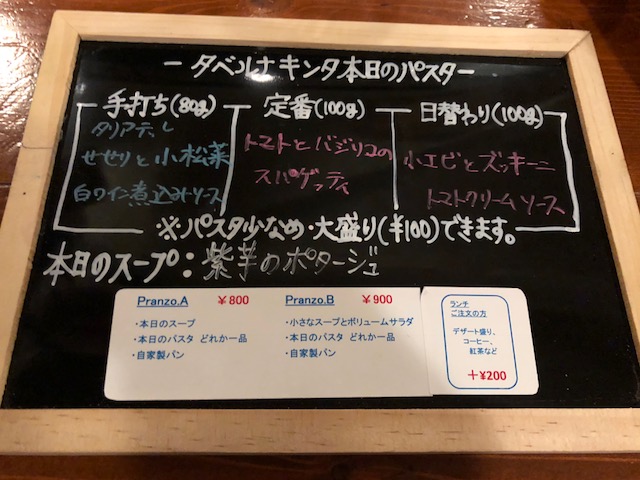 －タベルナキンタ本日のパスター
手打ち(80g)
タリアテレ
せせりと小松菜
白ワイン煮込みソース
定番(100g)
トマトとバジリコの
スパゲッティ
日替わり(100g)
小エビとズッキーニ
トマトクリームソース
※パスタ少なめ・大盛り(¥100)できます。
本日のスープ：紫芋のポタージュ
Pranzo.A ￥800
・本日のスープ
・本日のパスタ どれか一品
・自家製パン
Pranzo.B ￥900
・小さなスープとボリュームサラダ
・本日のパスタ どれか一品
・自家製パン
ランチ
ご注文の方
デザート盛り、
コーヒー、
紅茶など
＋¥200